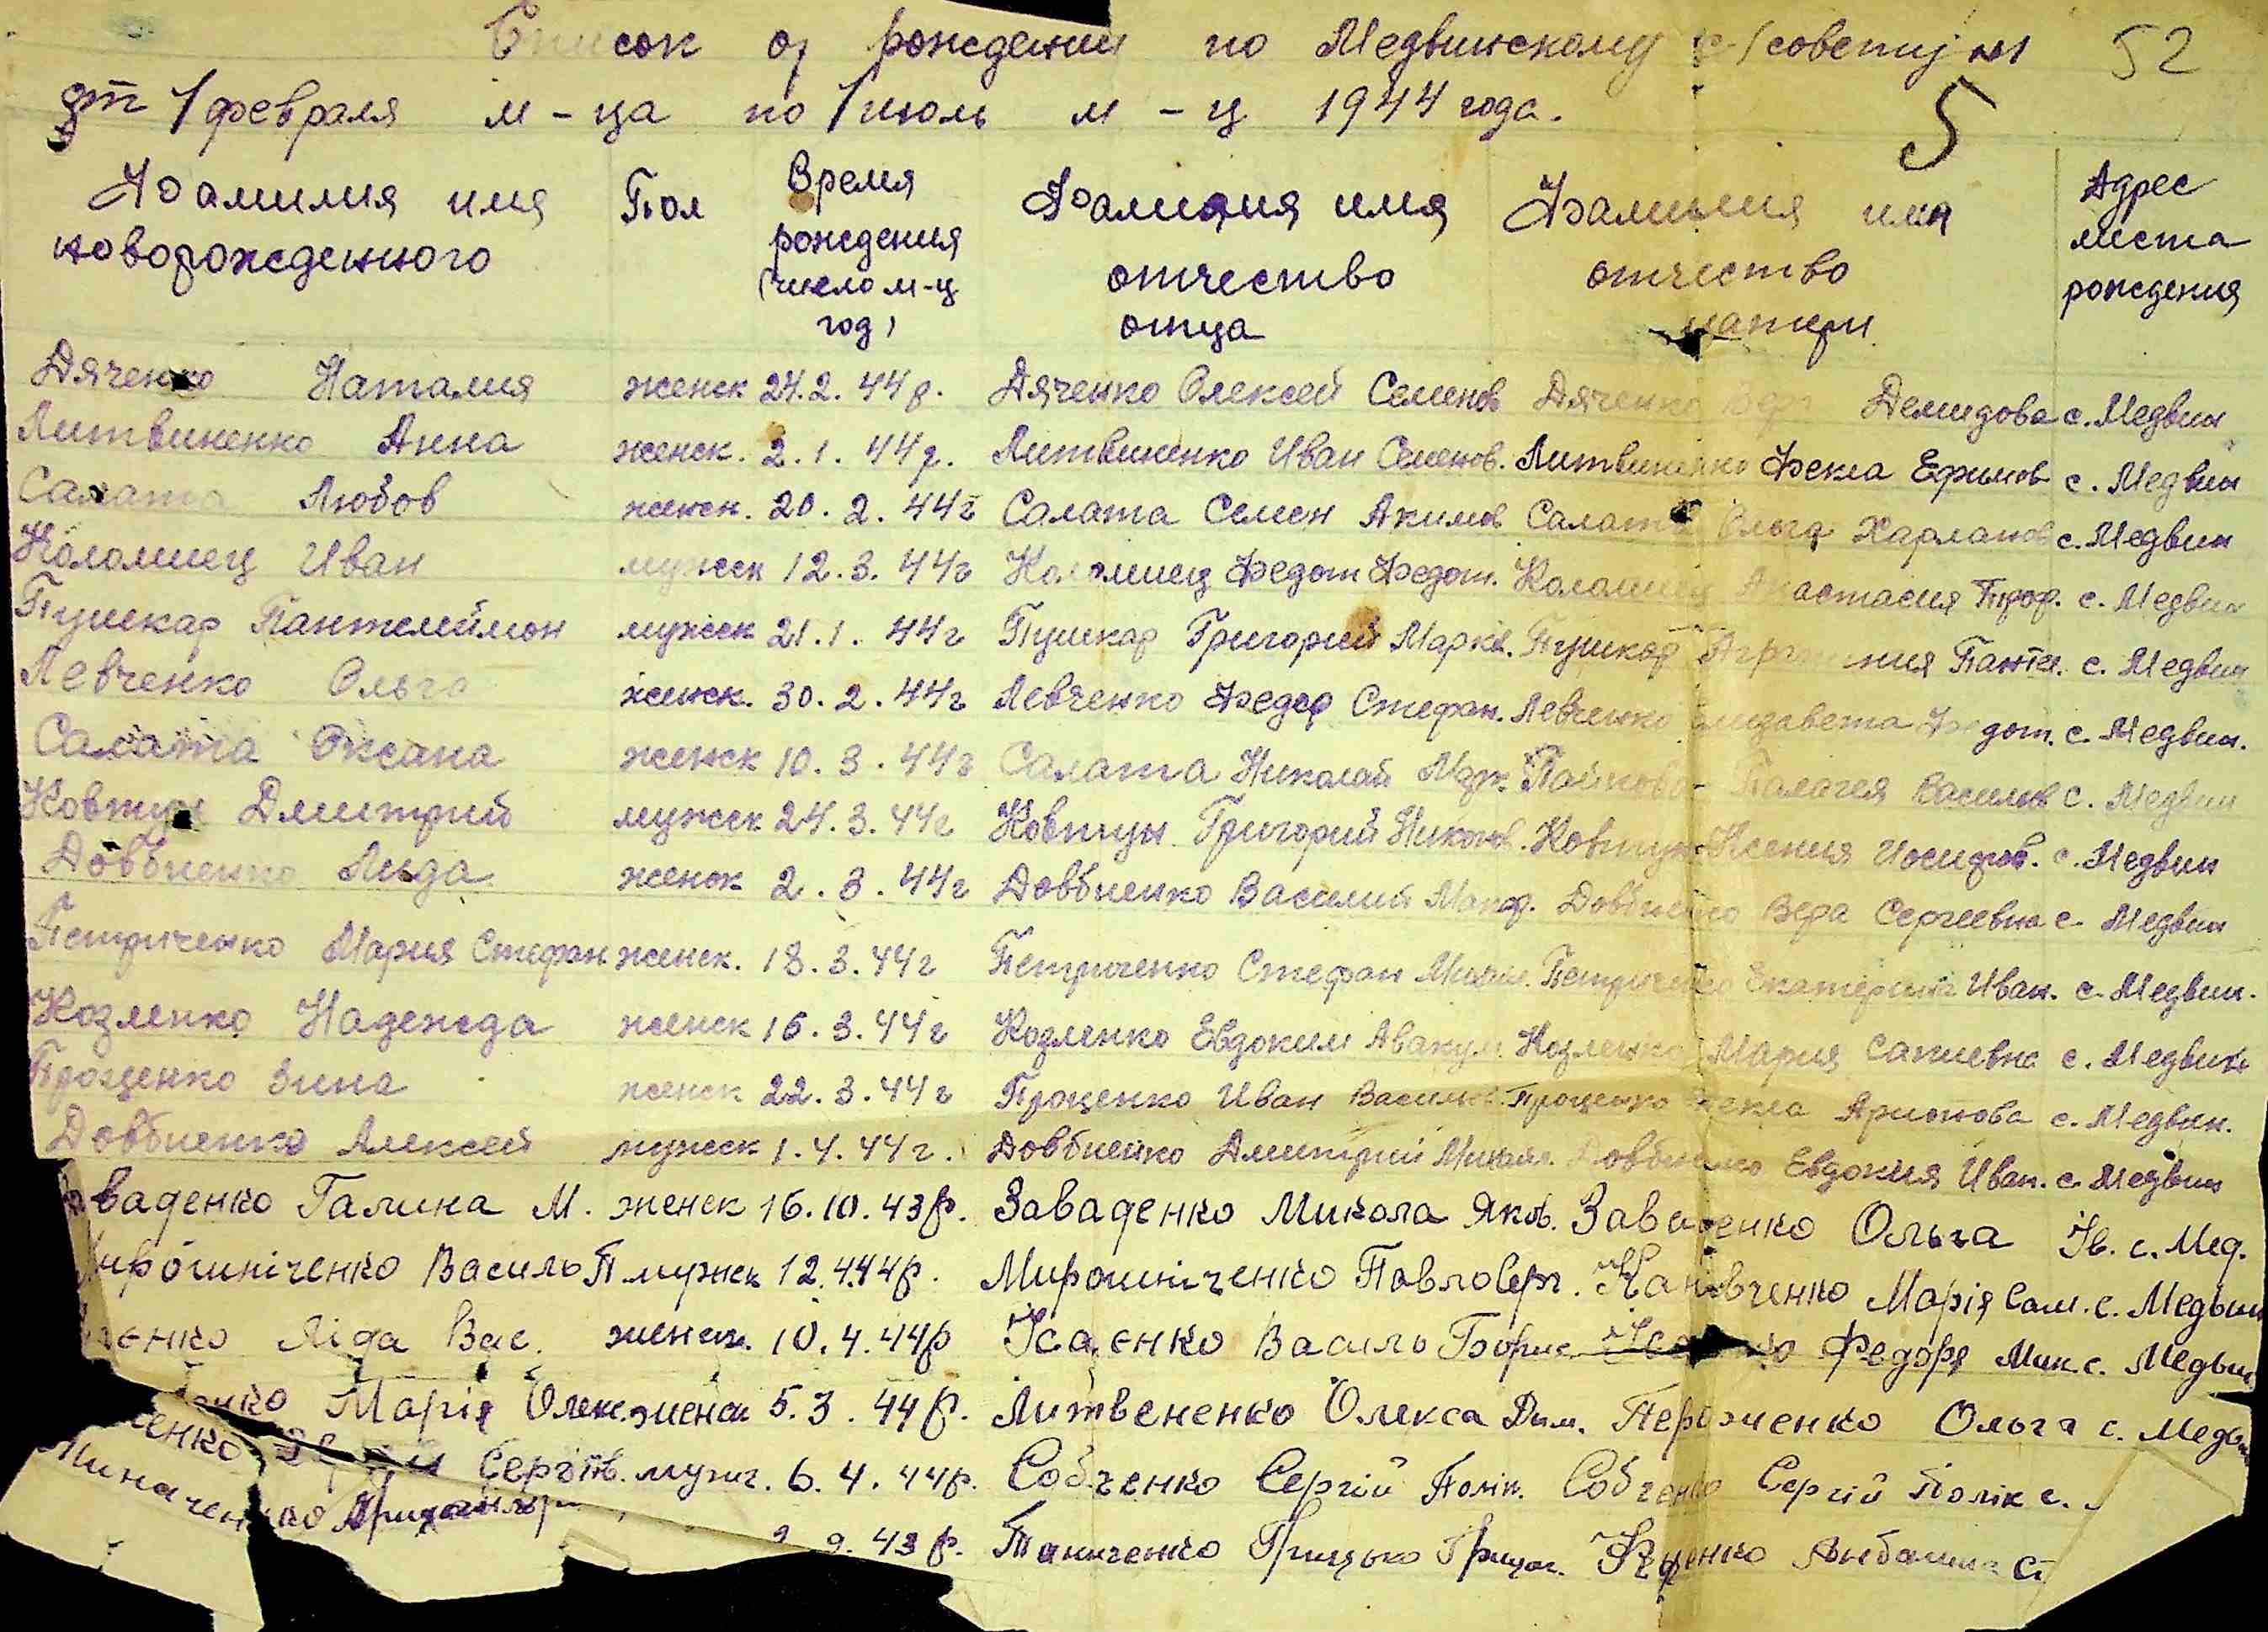 Список о рождении по Медвинскому с/совету 52
от 1 февраля м-ца по 1 июль м-ц 1944 года. 5
Фамилия имя новорожденного Пол Время рождения (число м-ц год) Фамилия имя отчество отца Фамилия имя отчество матери Адрес места рождения
Дяченко Наталия женск 24.2.44р. Дяченко Олексей Семенов Дяченко Вера Демидова с. Медвин
Литвиненко Анна женск. 2.1.44г. Литвиненко Иван Семенов. Литвиненко Фекла Ефимов с. Медвин
Салата Любов женск. 20.2.44г Салата Семен Акимов Салата Ольга Харланов с. Медвин
Коломиец Иван мужск 12.3.44г Коломиец Федот Федот. Коломиец Анастасия Троф. с. Медвин
Пушкар Пантелеймон мужск 21.1.44г Пушкар Григорий Марков. Пушкар Панте. с. Медвин
Левченко Ольга женск. 30.2.44г Левченко Федор Стефан. Левченко Елизавета Федот. с. Медвин.
Салата Оксана женск 10.3.44г Салата Николай Марк. Палагея Василив с. Медвин
Ковтун Дмитрий мужск 24.3.44г Ковтун Григорий Никонов. Ковтун Ксения Иосифов. с. Медвин
Довбненко Лида женск 2.3.44г Довбненко Василий Довбненко Вера Сергеевна с. Медвин
Петриченко Мария Стефан женск. 18.3.44г Петриченко Стефан Михаил. Петриченко Екатерина Иван. с. Медвин.
Козленко Надежда женск 16.3.44г Козленко Евдоким Авакум. Козленко Мария с. Медвин
Проценко Зина женск 22.3.44г Проценко Иван Васильев. Проценко Фекла с. Медвин.
Довбненко Алексей мужск 1.4.44г. Довбненко Дмитрий Михаил. Довбненко Евдокия Иван. с. Медвин
ваденко Галина М. женск 16.10.43р. Заваденко Микола Яков. Заваденко Ольга Ів. с. Мед.
ирошніченко Василь П мужск 12.4.44р. Мирошніченко Павло Серг. Марія Сам. с. Медвин
енко Ліда Вас. женск. 10.4.44р Ісаєнко Василь Борис Федора Мик. с. Медвин
енко Марія Олек. женск 5.3.44р. Литвененко Олекса Дим. Ольга с. Медвин
енко Сергіїв. мужч. 6.4.44р. Собченко Сергій Полік. Собченко Сергій Полік с.
9.43р. Грицько Грицог.